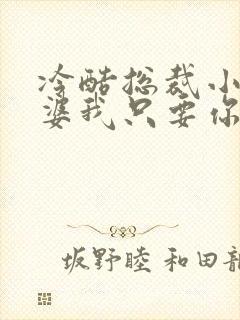 冷酷总裁小
婆我只要你
坂野睦 和田龍